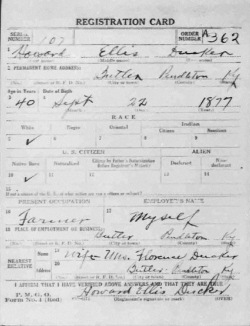 REGISTRATION CARD
SERIAL NUMBER 107 ORDER NUMBER A362
1 Howard Ellis Ducker
2 PERMANENT HOME ADDRESS:
Butler Pendleton Ky
Age in Years Date of Birth
40 Sept 22 1877
RACE
White Negro Oriental Indian
✓
U. S. CITIZEN ALIEN
Native Born Naturalized Citizen by Father's Naturalization Before Registrant's Majority Declarant Non-declarant
✓
PRESENT OCCUPATION EMPLOYER'S NAME
Farmer Myself
PLACE OF EMPLOYMENT OR BUSINESS:
Butler Pendleton Ky
NEAREST RELATIVE
Wife Mrs Florence Ducker
Butler Pendleton Ky
I AFFIRM THAT I HAVE VERIFIED ABOVE ANSWERS AND THAT THEY ARE TRUE
P. M. G. O.
Form No. 1 (Red) Howard Ellis Ducker